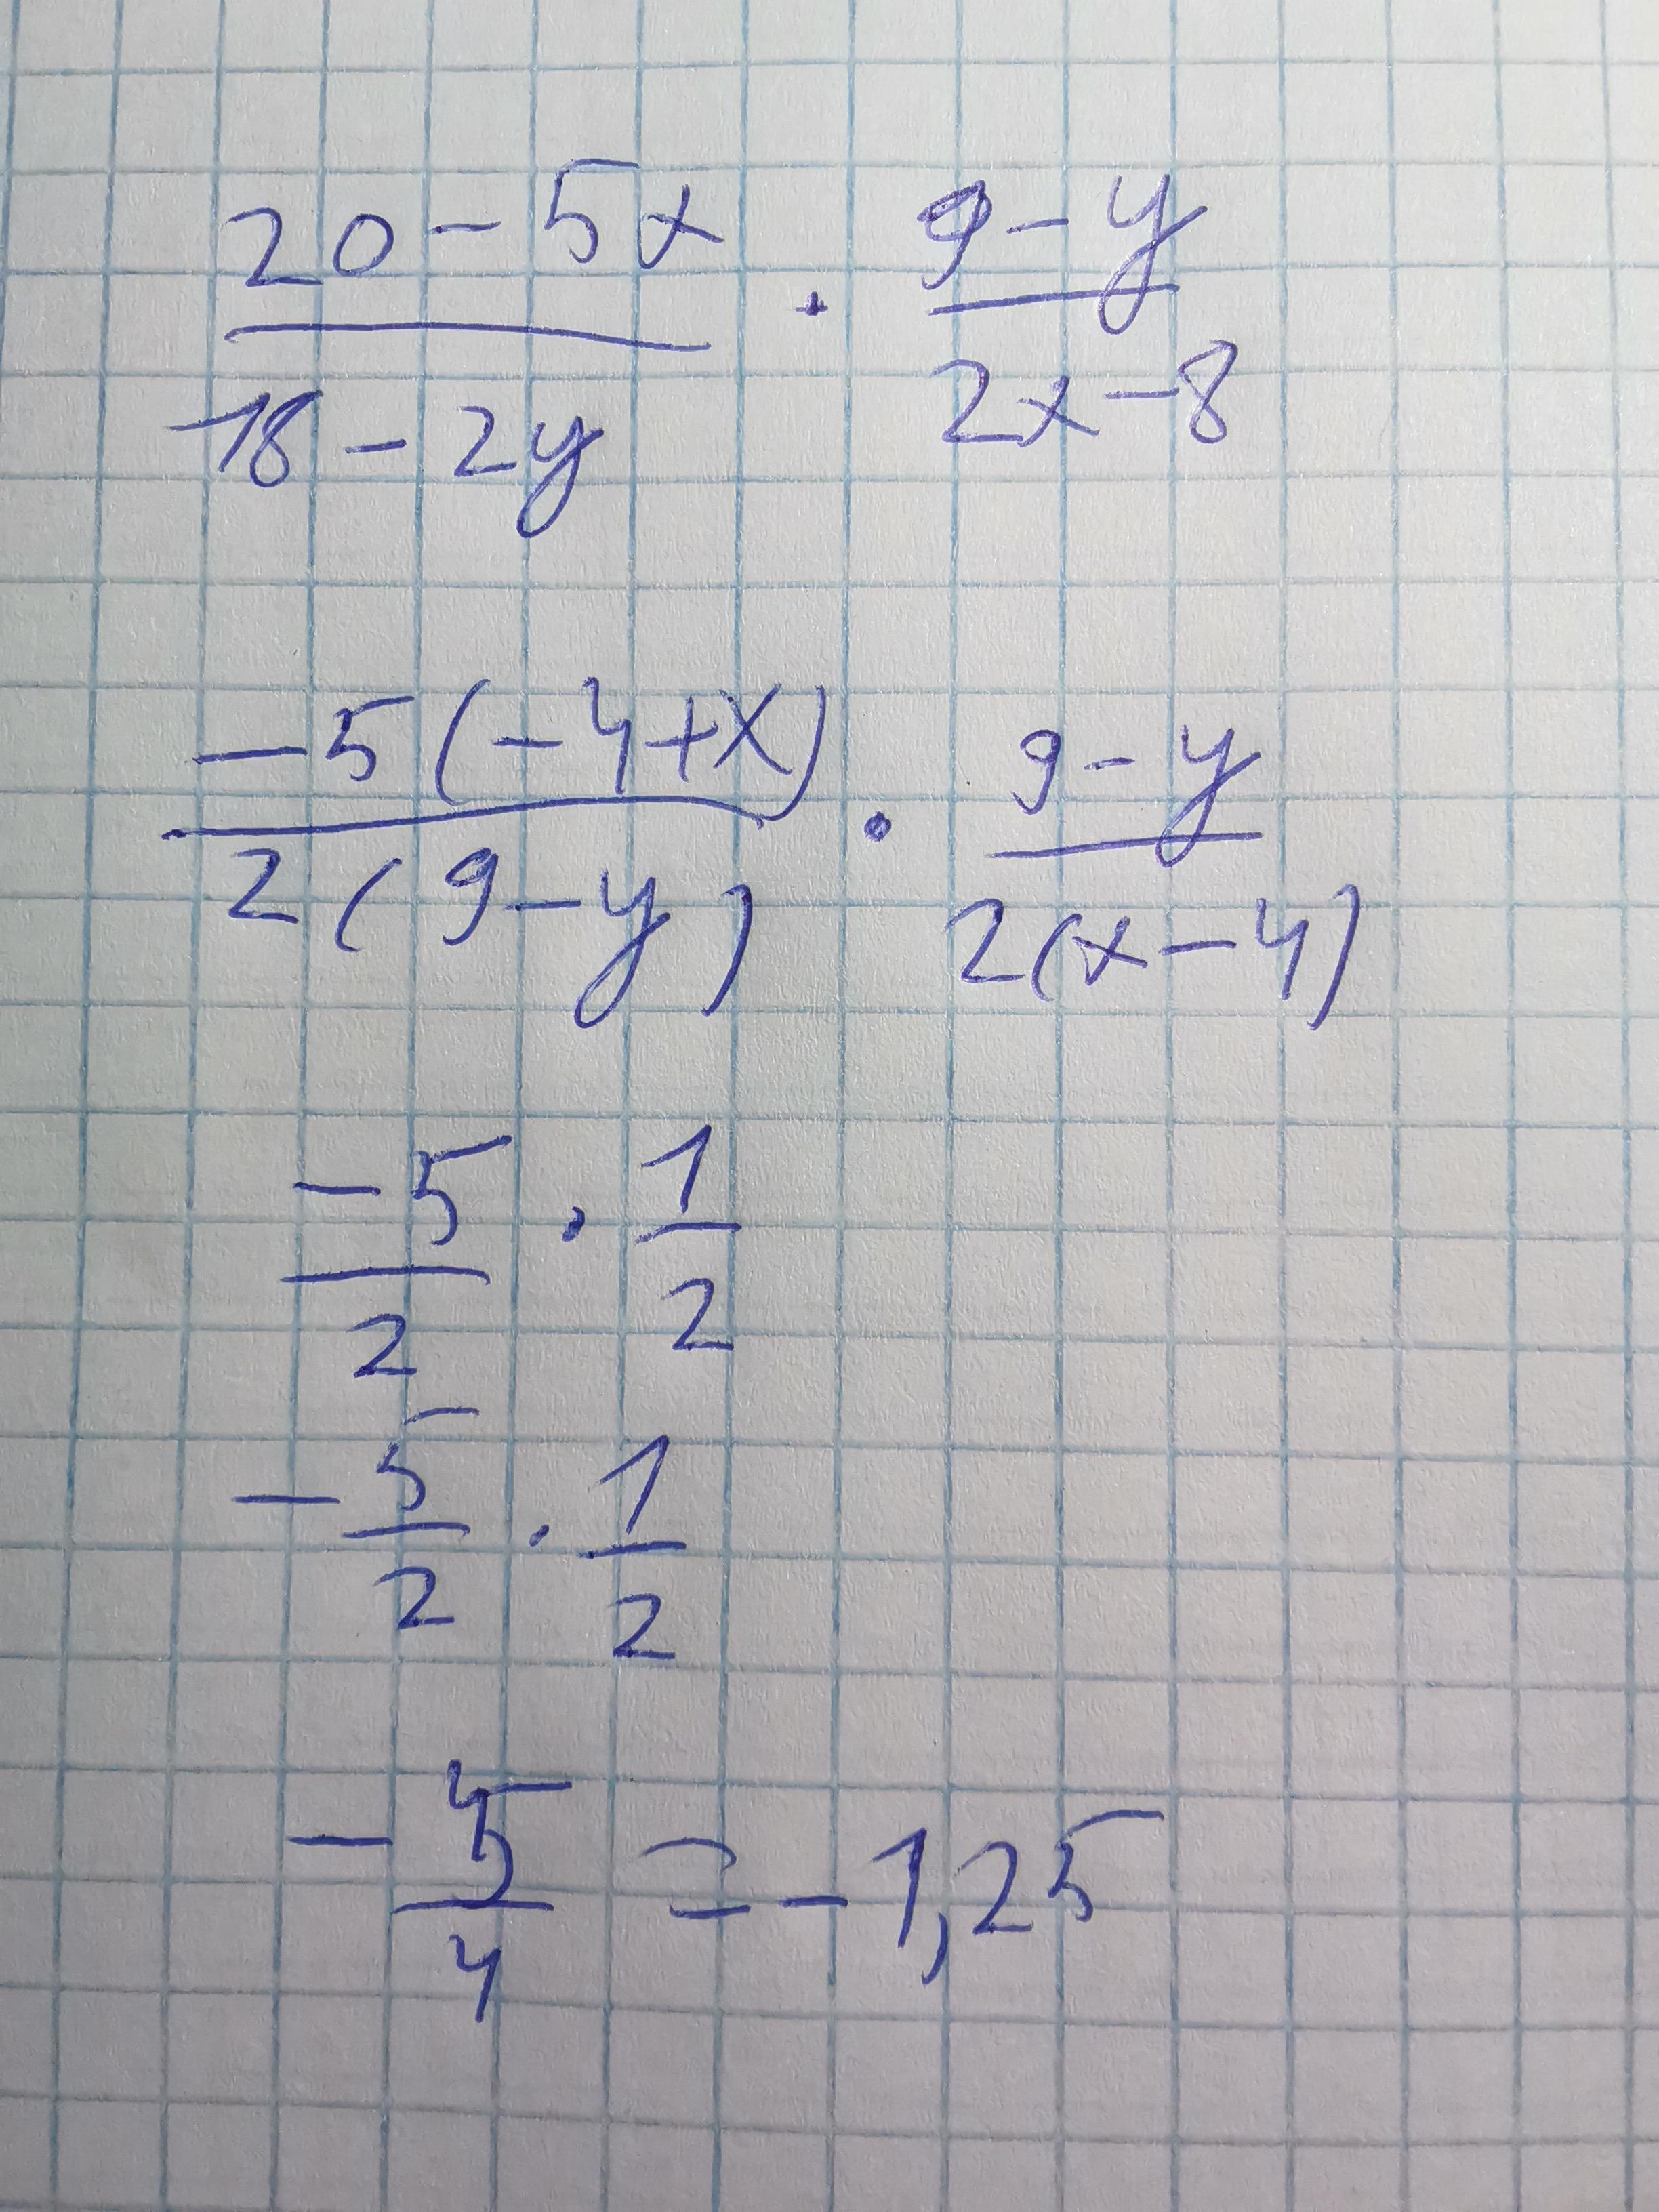 20 - 5x
9 - y
·
18 - 2y
2x - 8
-5(-4+x)
9 - y
·
2(9-y)
2(x-4)
-5/2 · 1/2
-5/2 · 1/2
-5/4 = -1,25